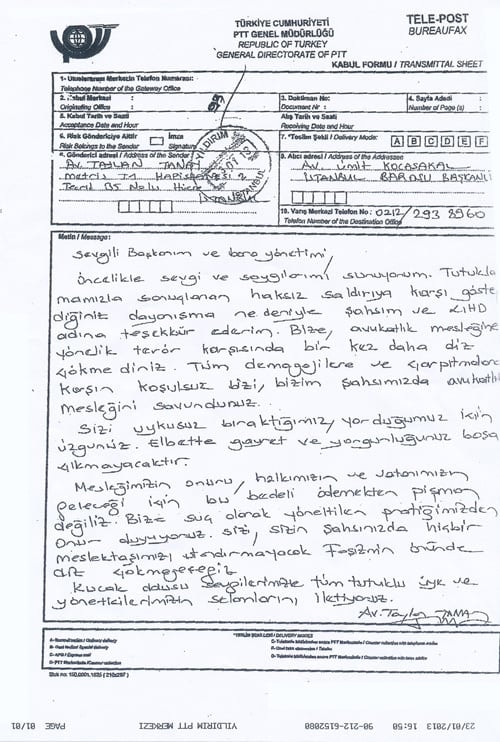 TÜRKİYE CUMHURİYETİ
PTT GENEL MÜDÜRLÜĞÜ
REPUBLIC OF TURKEY
GENERAL DIRECTORATE OF PTT
TELE-POST
BUREAUFAX
KABUL FORMU / TRANSMITTAL SHEET
1- Uluslararası Merkezin Telefon Numarası:
Telephone Number of the Gateway Office
2- Kabul Merkezi :
Originating Office :
3. Doküman No:
Document Nr :
4. Sayfa Adedi
Number of Page(s) :
5. Kabul Tarih ve Saati
Acceptance Date and Hour
Alış Tarih ve Saati
Receiving Date and Hour
6. Risk Göndericiye Aittir
Risk Belongs to the Sender
İmza
Signature
7. *Teslim Şekli / Delivery Mode:
A B C D E F
8. Gönderici adresi / Address of the Sender
Av. TAYLAN TANAY
Metris T1 HAPİSHANESİ 2
Tecrit B5 Nolu Hücre
YILDIRIM
İSTANBUL
9. Alıcı adresi / Address of the Addressee
Av. Ümit KOCASAKAL
İSTANBUL BAROSU BAŞKANI
10. Varış Merkezi Telefon No : 0212/293 8960
Telefon Number of the Destination Office
Metin / Message:
Sevgili Başkanım ve baro yönetimi,
Öncelikle sevgi ve saygılarımı sunuyorum. Tutukla
mamızla sonuçlanan haksız saldırıya karşı göste
diğiniz dayanışma nedeniyle şahsım ve ÇHD
adına teşekkür ederim. Bize, avukatlık mesleğine
yönelik terör karşısında bir kez daha diz
çökme diniz. Tüm demagojilere ve çarpıtmalara
karşın koşulsuz bizi, bizim şahsımızda avukatlık
mesleğini savundunuz.
Sizi uykusuz bıraktığımız, yorduğumuz için
üzgünüz. Elbette gayret ve yorgunluğunuz boşa
çıkmayacaktır.
Mesleğimizin onuru, halkımızın ve vatanımızın
geleceği için bu bedeli ödemekten pişman
değiliz. Bize suç olarak yöneltilen pratiğimizden
onur duyuyoruz. Sizi, sizin şahsınızda hiçbir
meslektaşımızı utandırmayacak Faşizmin önünde
diz çökmeyeceğiz
Kucak dolusu sevgilerimizle tüm tutuklu üye ve
yöneticilerimizin selamlarını iletiyoruz.
Av. Taylan TANAY
*TESLİM ŞEKİLLERİ / DELIVERY MODES
Stok no: 150.0001.1035 ( 210x297 )
23/01/2013 16:50 90-212-6152080 YILDIRIM PTT MERKEZI PAGE 01/01